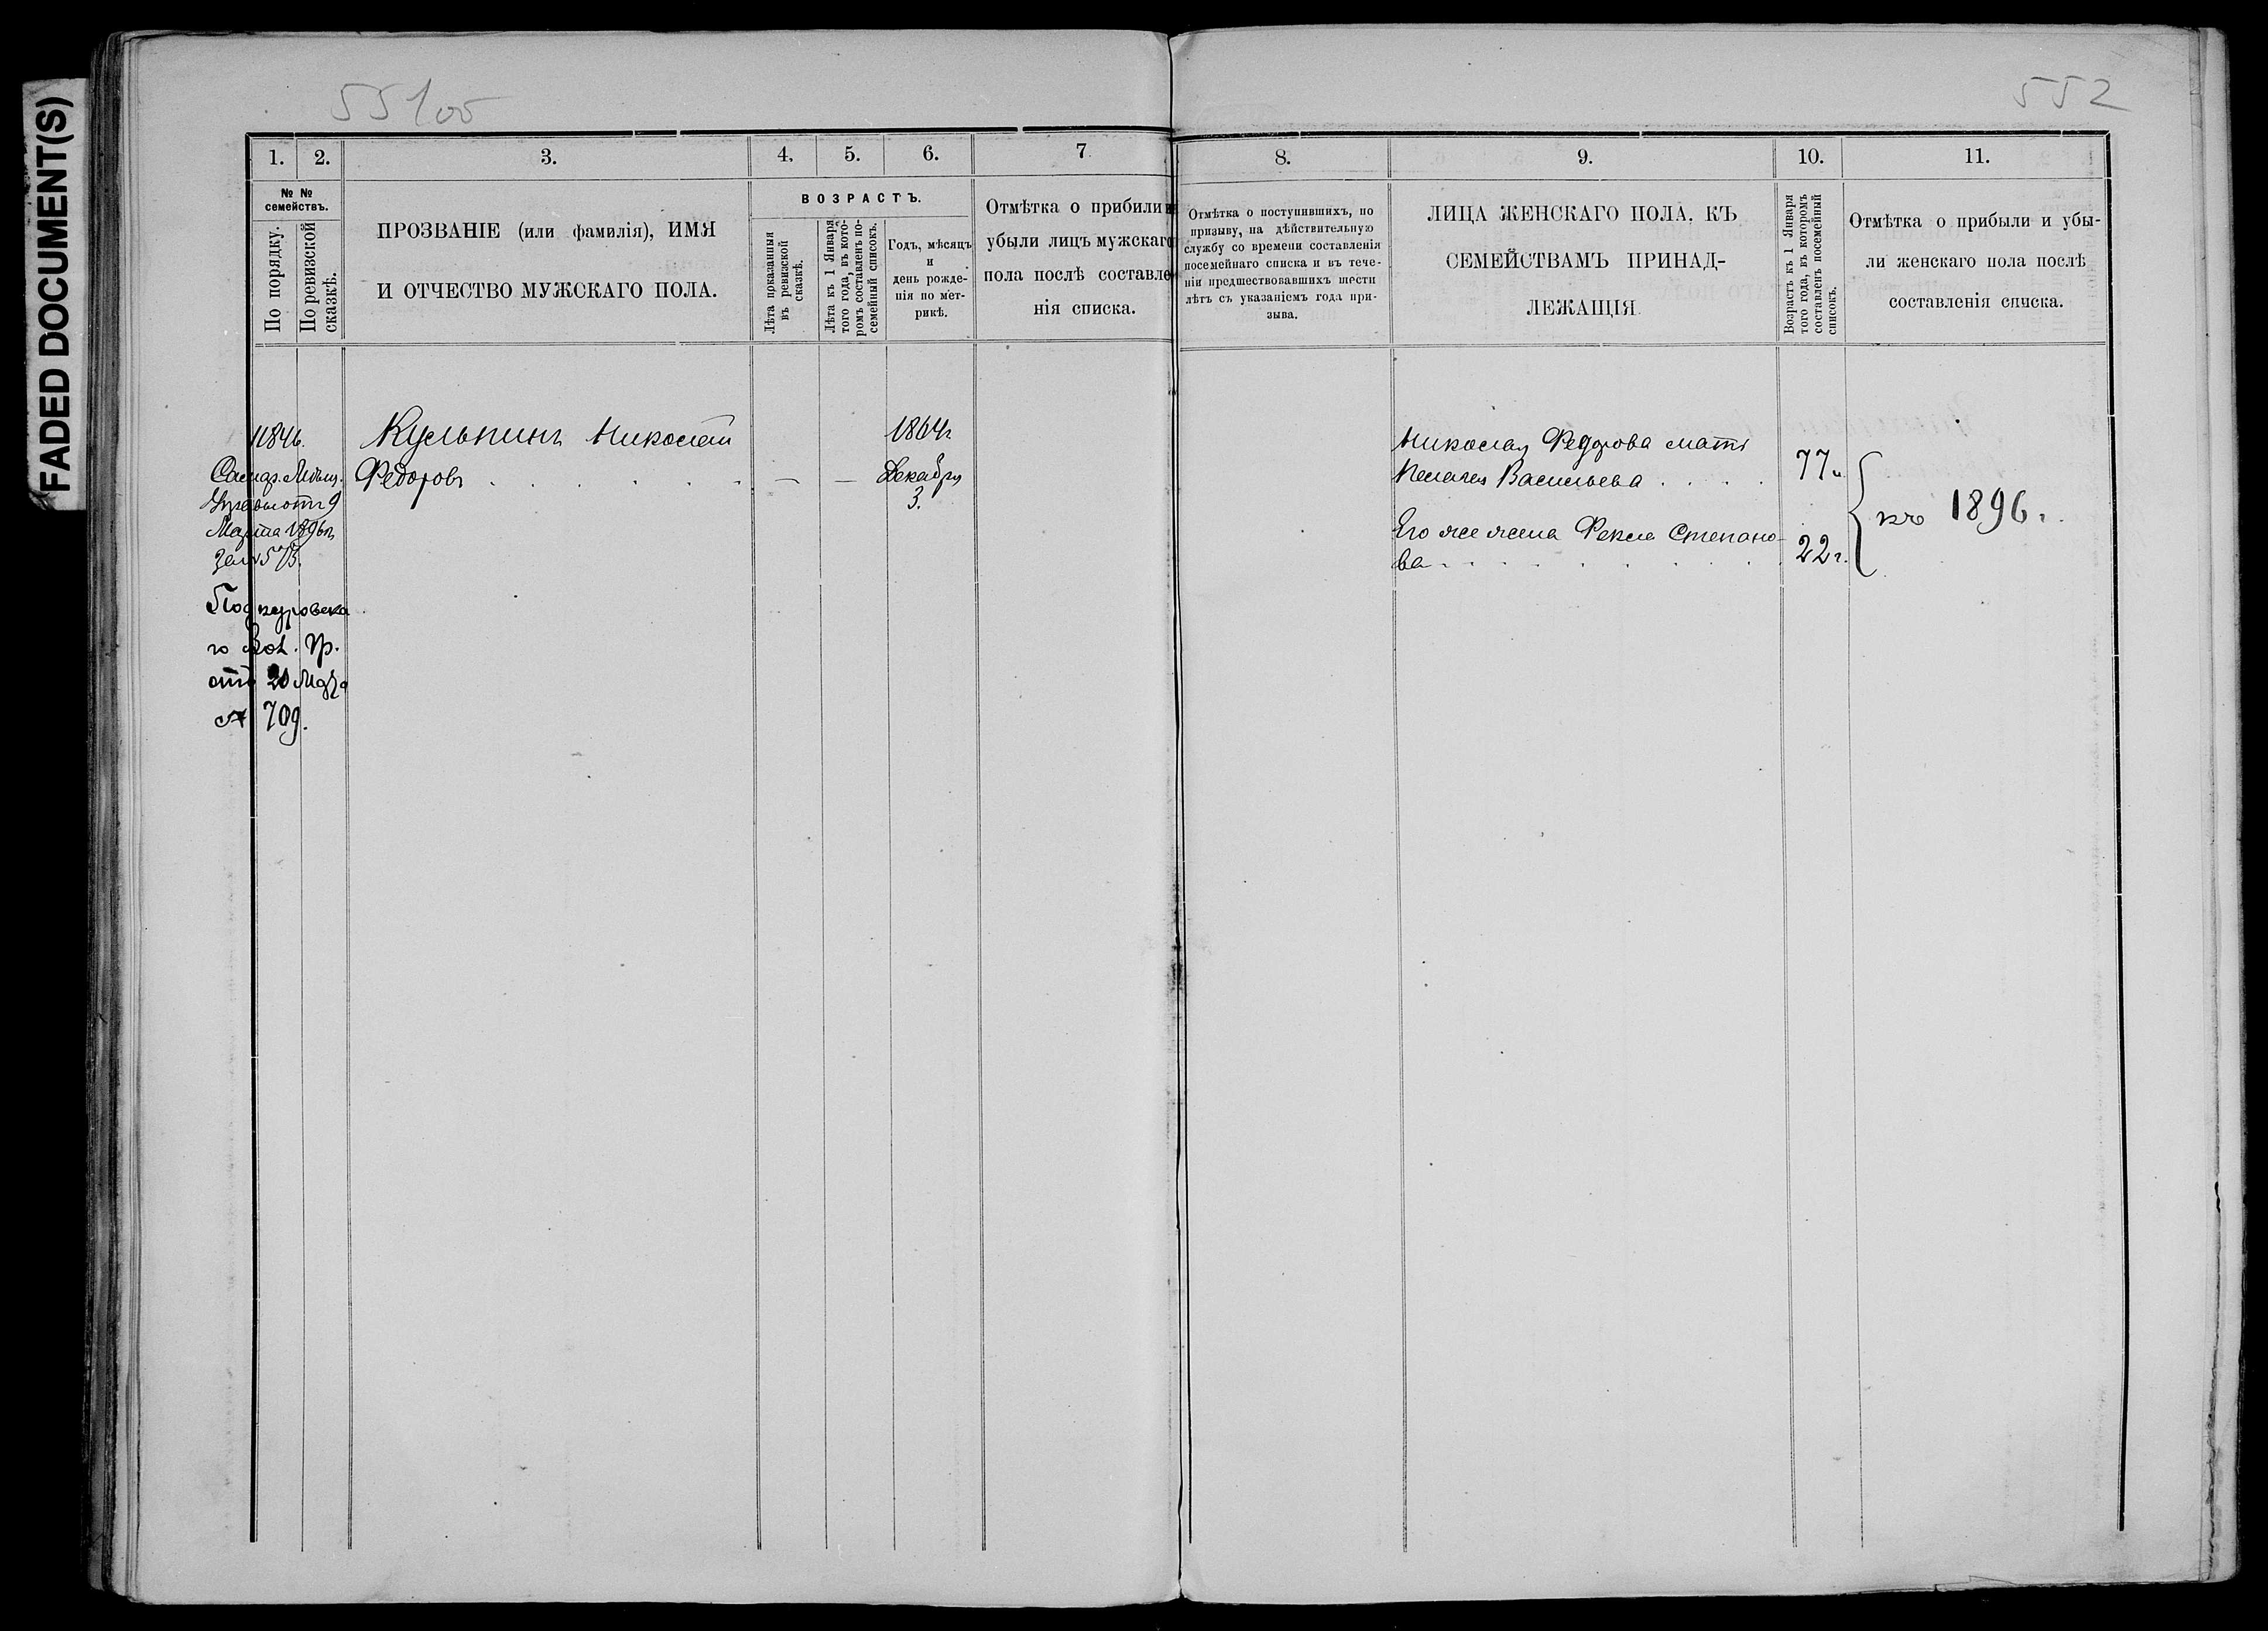 FADED DOCUMENT(S)
551об
552
1.
2.
3.
4.
5.
6.
7
8.
9.
10.
11.
№ №
семействъ.
По порядку.
По ревизской
сказкѣ.
ПРОЗВАНІЕ (или фамилія), ИМЯ
И ОТЧЕСТВО МУЖСКАГО ПОЛА.
ВОЗРАСТЪ.
Лѣта показанныя
въ ревизской
сказкѣ.
Лѣта къ 1 Января
того года, въ кото-
ромъ составленъ по-
семейный списокъ.
Годъ, мѣсяцъ
и
день рожде-
нія по мет-
рикѣ.
Отмѣтка о прибили и
убыли лицъ мужскаго
пола послѣ составле-
нія списка.
Отмѣтка о поступившихъ, по
призыву, на дѣйствительную
службу со времени составленія
посемейнаго списка и въ тече-
ніи предшествовавшихъ шести
лѣтъ съ указаніемъ года при-
зыва.
ЛИЦА ЖЕНСКАГО ПОЛА, КЪ
СЕМЕЙСТВАМЪ ПРИНАД-
ЛЕЖАЩІЯ
Возрастъ къ 1 Января
того года, въ которомъ
составленъ посемейный
списокъ.
Отмѣтка о прибыли и убы-
ли женскаго пола послѣ
составленія списка.
11846.
Самар. Мѣщ.
Управы отъ 9
Марта 1896 г.
за № 573.
Подкуровска
го Вол. Пр.
отъ 20 Мар̃а
№ 709.
Кульпинъ Николай
Федоровъ
1864 г
Декабря
3.
Николая Федорова мать
Пелагея Васильева
77
Его же жена Фекла Степано-
ва
22 г.
къ 1896 г.